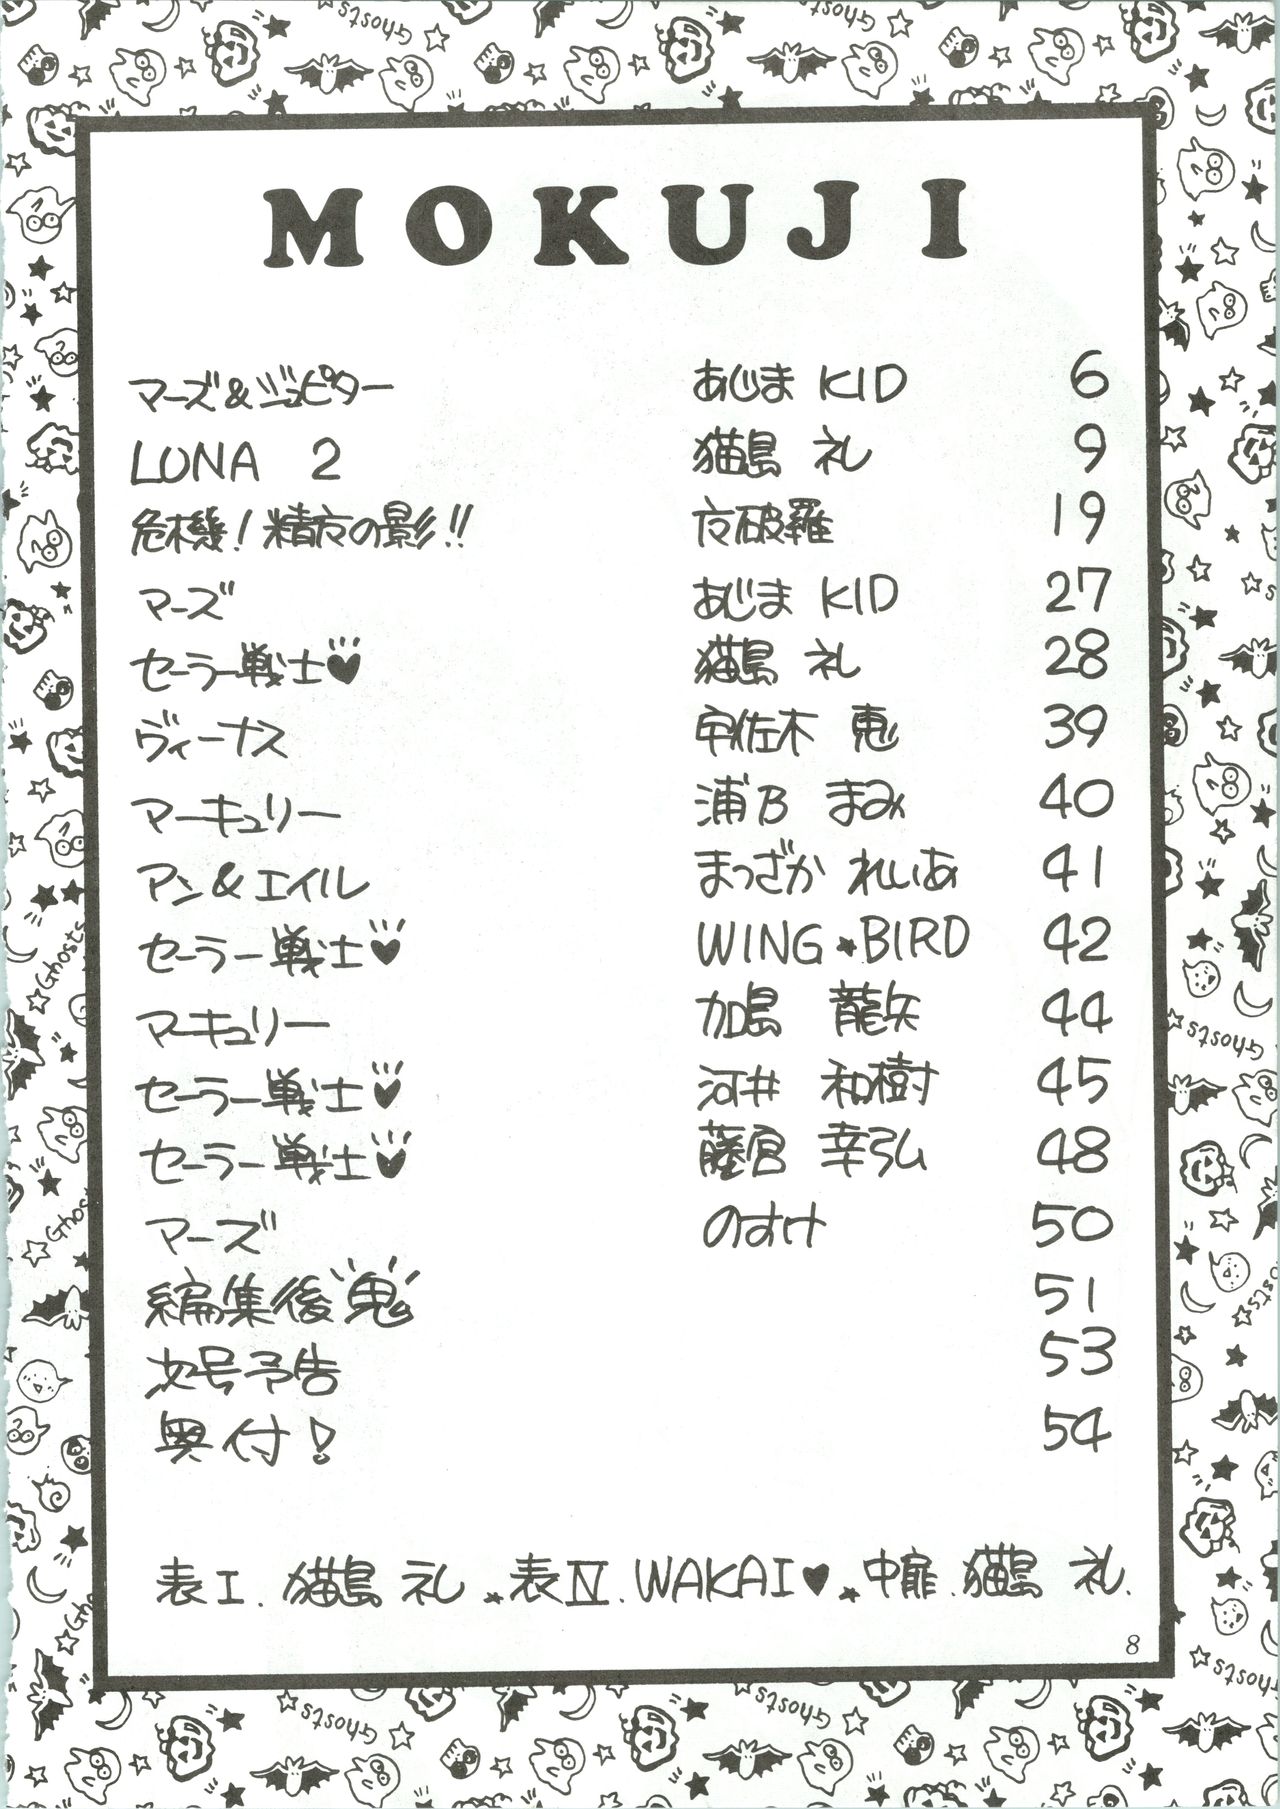 MOKUJI
マーズ&ジュピター あじま KID 6
LUNA 2 猫島 礼 9
危機!精方の影!! 夜破羅 19
マーズ あじま KID 27
セーラー戦士♥ 猫島 礼 28
ヴィーナス 宇佐木 恵 39
マーキュリー 浦乃 まみ 40
アン&エイル まっざか れいあ 41
セーラー戦士♥ WING★BIRD 42
マーキュリー 加島 龍矢 44
セーラー戦士♥ 河井 和樹 45
セーラー戦士♥ 藤宮 幸弘 48
マーズ のすけ 50
編集後鬼 51
次号予告 53
奥付! 54
表I. 猫島 礼 ★表IV. WAKAI♥ ★中扉. 猫島 礼.
8
Ghosts